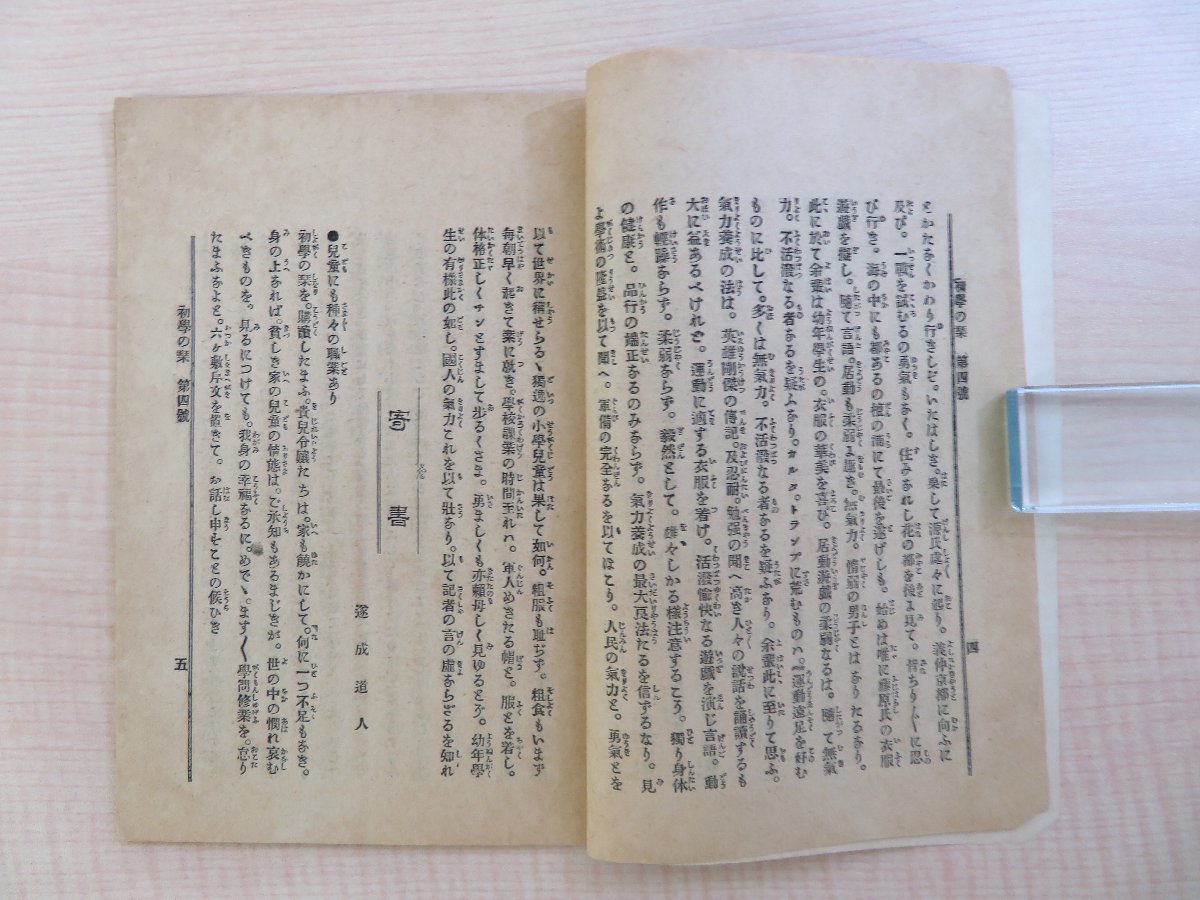 初學の栞 第四號
四
とかたなくかわり行きしぞ。いたはしき。果して源氏處々に起り。義仲京都に向ふに
及び。一戰を試むるの勇氣もなく。住みなれし花の都を後よ見て。皆ちり〴〵に忍
び行き。海の中にも都あるの種の浦にて最後を遂げしも。始めは唯に藤原氏の衣服
遊戯を擬し。隨て言語。居動も柔弱よ趣き。無氣力。惰弱の男子とはなりたるなり。
此に於て余輩は幼年學生の。衣服の華美を喜び。居動遊戯の柔弱なるは。隨て無氣
力。不活潑なる者なるを疑ふなり。カルタ。トランプに荒むものハ。運動遠足を好む
ものに比して。多くは無氣力。不活潑なる者なるを疑ふなり。余輩此に至りて思ふ。
氣力養成の法は。英雄剛傑の傳記。及忍耐。勉强の聞へ高き人々の說話を誦讀するも
大に益あるべけれど。運動に適する衣服を着け。活潑愉快なる遊戯を演じ言語。動
作も輕躁ならず。柔弱ならず。毅然として。雄々しかる樣注意するこう。獨り身体
の健康と。品行の端正なるのみならず。氣力養成の最大良法たるを信ずるなり。見
よ學術の隆盛を以て聞へ。軍備の完全なるを以てほこり。人民の氣力と。勇氣とを
以て世界に稱せらるヽ獨逸の小學兒童は果して如何。粗服も耻ぢず。粗食もいまず
每朝早く起きて業に就き。學校課業の時間至れハ。軍人めきたる帽と。服とを着し。
体格正しくサンとすまして步るくさま。勇ましくも亦賴母しく見ゆるとぞ。幼年學
生の有樣此の如し。國人の氣力これを以て壯なり。以て記者の言の虛ならざるを知れ
寄書
遂成道人
●兒童にも種々の職業あり
初學の栞を。購讀したまふ。貴兒令孃たちは。家も饒かにして。何に一つ不足もなき。
身の上なれば。貧しき家の兒童の情態は。ご承知もあるまじきが。世の中の憫れ哀む
べきものを。見るにつけても。我身の幸福なるに。めでヽ。ます〳〵學問修業を。怠り
たまふなよと。六ヶ敷斥文を置きて。お話し申そことの候ひき
初學の栞 第四號
五